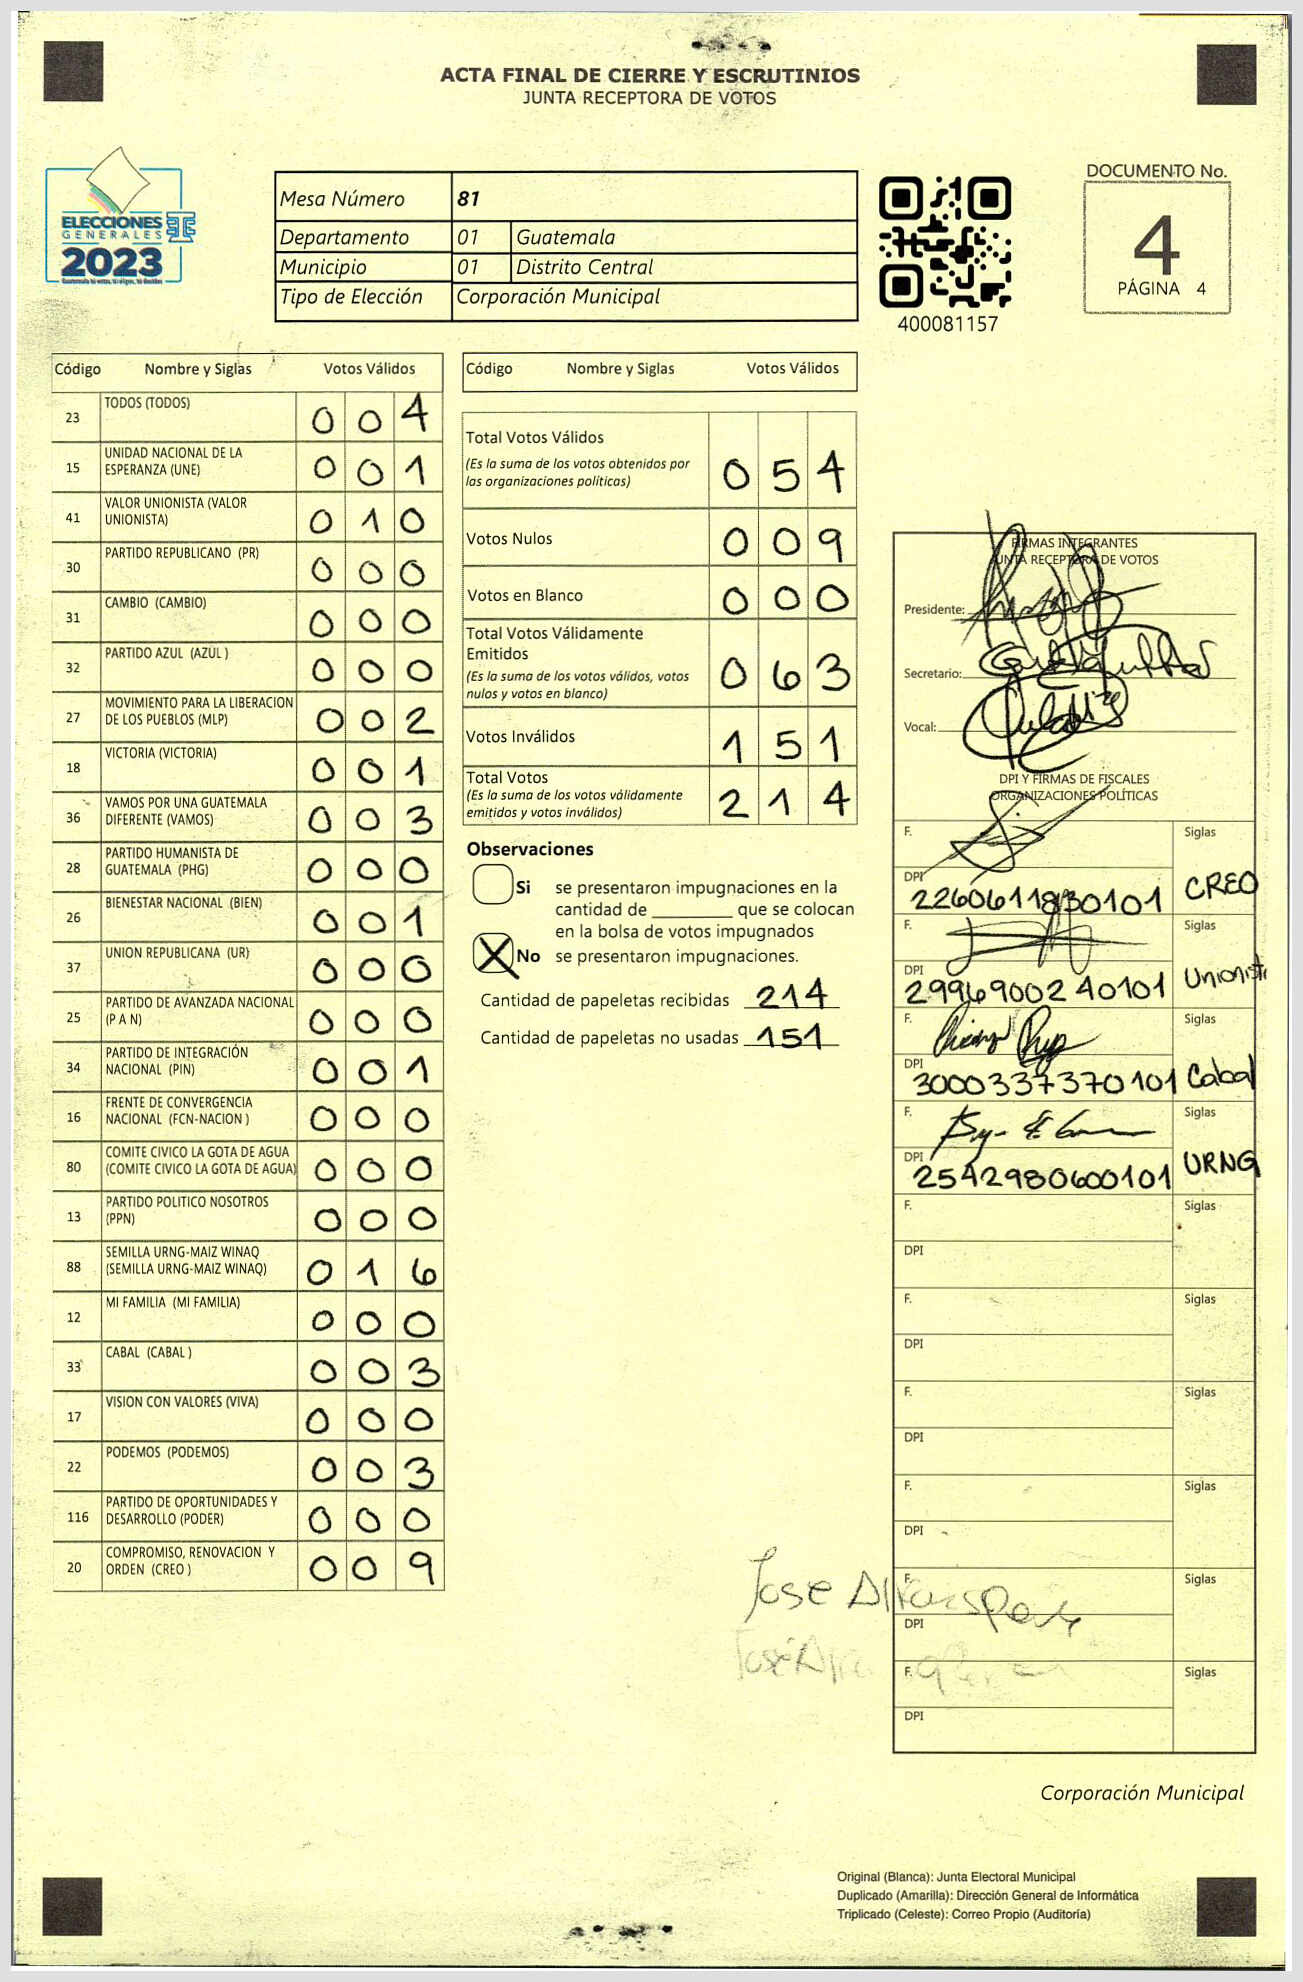 ACTA FINAL DE CIERRE Y ESCRUTINIOS
JUNTA RECEPTORA DE VOTOS
ELECCIONES
GENERALES
2023
Mesa Número 81
Departamento 01 Guatemala
Municipio 01 Distrito Central
Tipo de Elección Corporación Municipal
400081157
DOCUMENTO No.
4
PÁGINA 4
Código Nombre y Siglas Votos Válidos
23 TODOS (TODOS) 0 0 4
15 UNIDAD NACIONAL DE LA
ESPERANZA (UNE) 0 0 1
41 VALOR UNIONISTA (VALOR
UNIONISTA) 0 1 0
30 PARTIDO REPUBLICANO (PR) 0 0 0
31 CAMBIO (CAMBIO) 0 0 0
32 PARTIDO AZUL (AZUL ) 0 0 0
27 MOVIMIENTO PARA LA LIBERACION
DE LOS PUEBLOS (MLP) 0 0 2
18 VICTORIA (VICTORIA) 0 0 1
36 VAMOS POR UNA GUATEMALA
DIFERENTE (VAMOS) 0 0 3
28 PARTIDO HUMANISTA DE
GUATEMALA (PHG) 0 0 0
26 BIENESTAR NACIONAL (BIEN) 0 0 1
37 UNION REPUBLICANA (UR) 0 0 0
25 PARTIDO DE AVANZADA NACIONAL
(P A N) 0 0 0
34 PARTIDO DE INTEGRACIÓN
NACIONAL (PIN) 0 0 1
16 FRENTE DE CONVERGENCIA
NACIONAL (FCN-NACION ) 0 0 0
80 COMITE CIVICO LA GOTA DE AGUA
(COMITE CIVICO LA GOTA DE AGUA) 0 0 0
13 PARTIDO POLITICO NOSOTROS
(PPN) 0 0 0
88 SEMILLA URNG-MAIZ WINAQ
(SEMILLA URNG-MAIZ WINAQ) 0 1 6
12 MI FAMILIA (MI FAMILIA) 0 0 0
33 CABAL (CABAL ) 0 0 3
17 VISION CON VALORES (VIVA) 0 0 0
22 PODEMOS (PODEMOS) 0 0 3
116 PARTIDO DE OPORTUNIDADES Y
DESARROLLO (PODER) 0 0 0
20 COMPROMISO, RENOVACION Y
ORDEN (CREO ) 0 0 9
Código Nombre y Siglas Votos Válidos
Total Votos Válidos
(Es la suma de los votos obtenidos por
las organizaciones políticas) 0 5 4
Votos Nulos 0 0 9
Votos en Blanco 0 0 0
Total Votos Válidamente
Emitidos
(Es la suma de los votos válidos, votos
nulos y votos en blanco) 0 6 3
Votos Inválidos 1 5 1
Total Votos
(Es la suma de los votos válidamente
emitidos y votos inválidos) 2 1 4
Observaciones
Si se presentaron impugnaciones en la
cantidad de ________ que se colocan
en la bolsa de votos impugnados
X No se presentaron impugnaciones.
Cantidad de papeletas recibidas 214
Cantidad de papeletas no usadas 151
FIRMAS INTEGRANTES
JUNTA RECEPTORA DE VOTOS
Presidente:
Secretario:
Vocal:
DPI Y FIRMAS DE FISCALES
ORGANIZACIONES POLÍTICAS
F. Siglas
DPI 2260611830101 CREO
F.
DPI 2996900240101 Unionista
F. Siglas
DPI 3000337370101 Cabal
F. Siglas
DPI 2542980600101 URNG
F. Siglas
DPI
F. Siglas
DPI
F. Siglas
DPI
F. Siglas
DPI
F. Siglas
Jose
DPI
F. Siglas
DPI
Corporación Municipal
Original (Blanca): Junta Electoral Municipal
Duplicado (Amarilla): Dirección General de Informática
Triplicado (Celeste): Correo Propio (Auditoría)